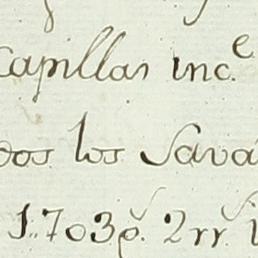 Capillas inc.e
dos los Sava
1.703p.s 2rr.s